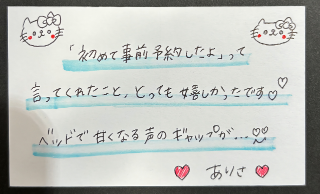 「初めて事前予約したよ」って
言ってくれたこと，とっても嬉しかったです♡♡
ベッドで甘くなる声のギャップが...♡♡
♥ ありさ ♥